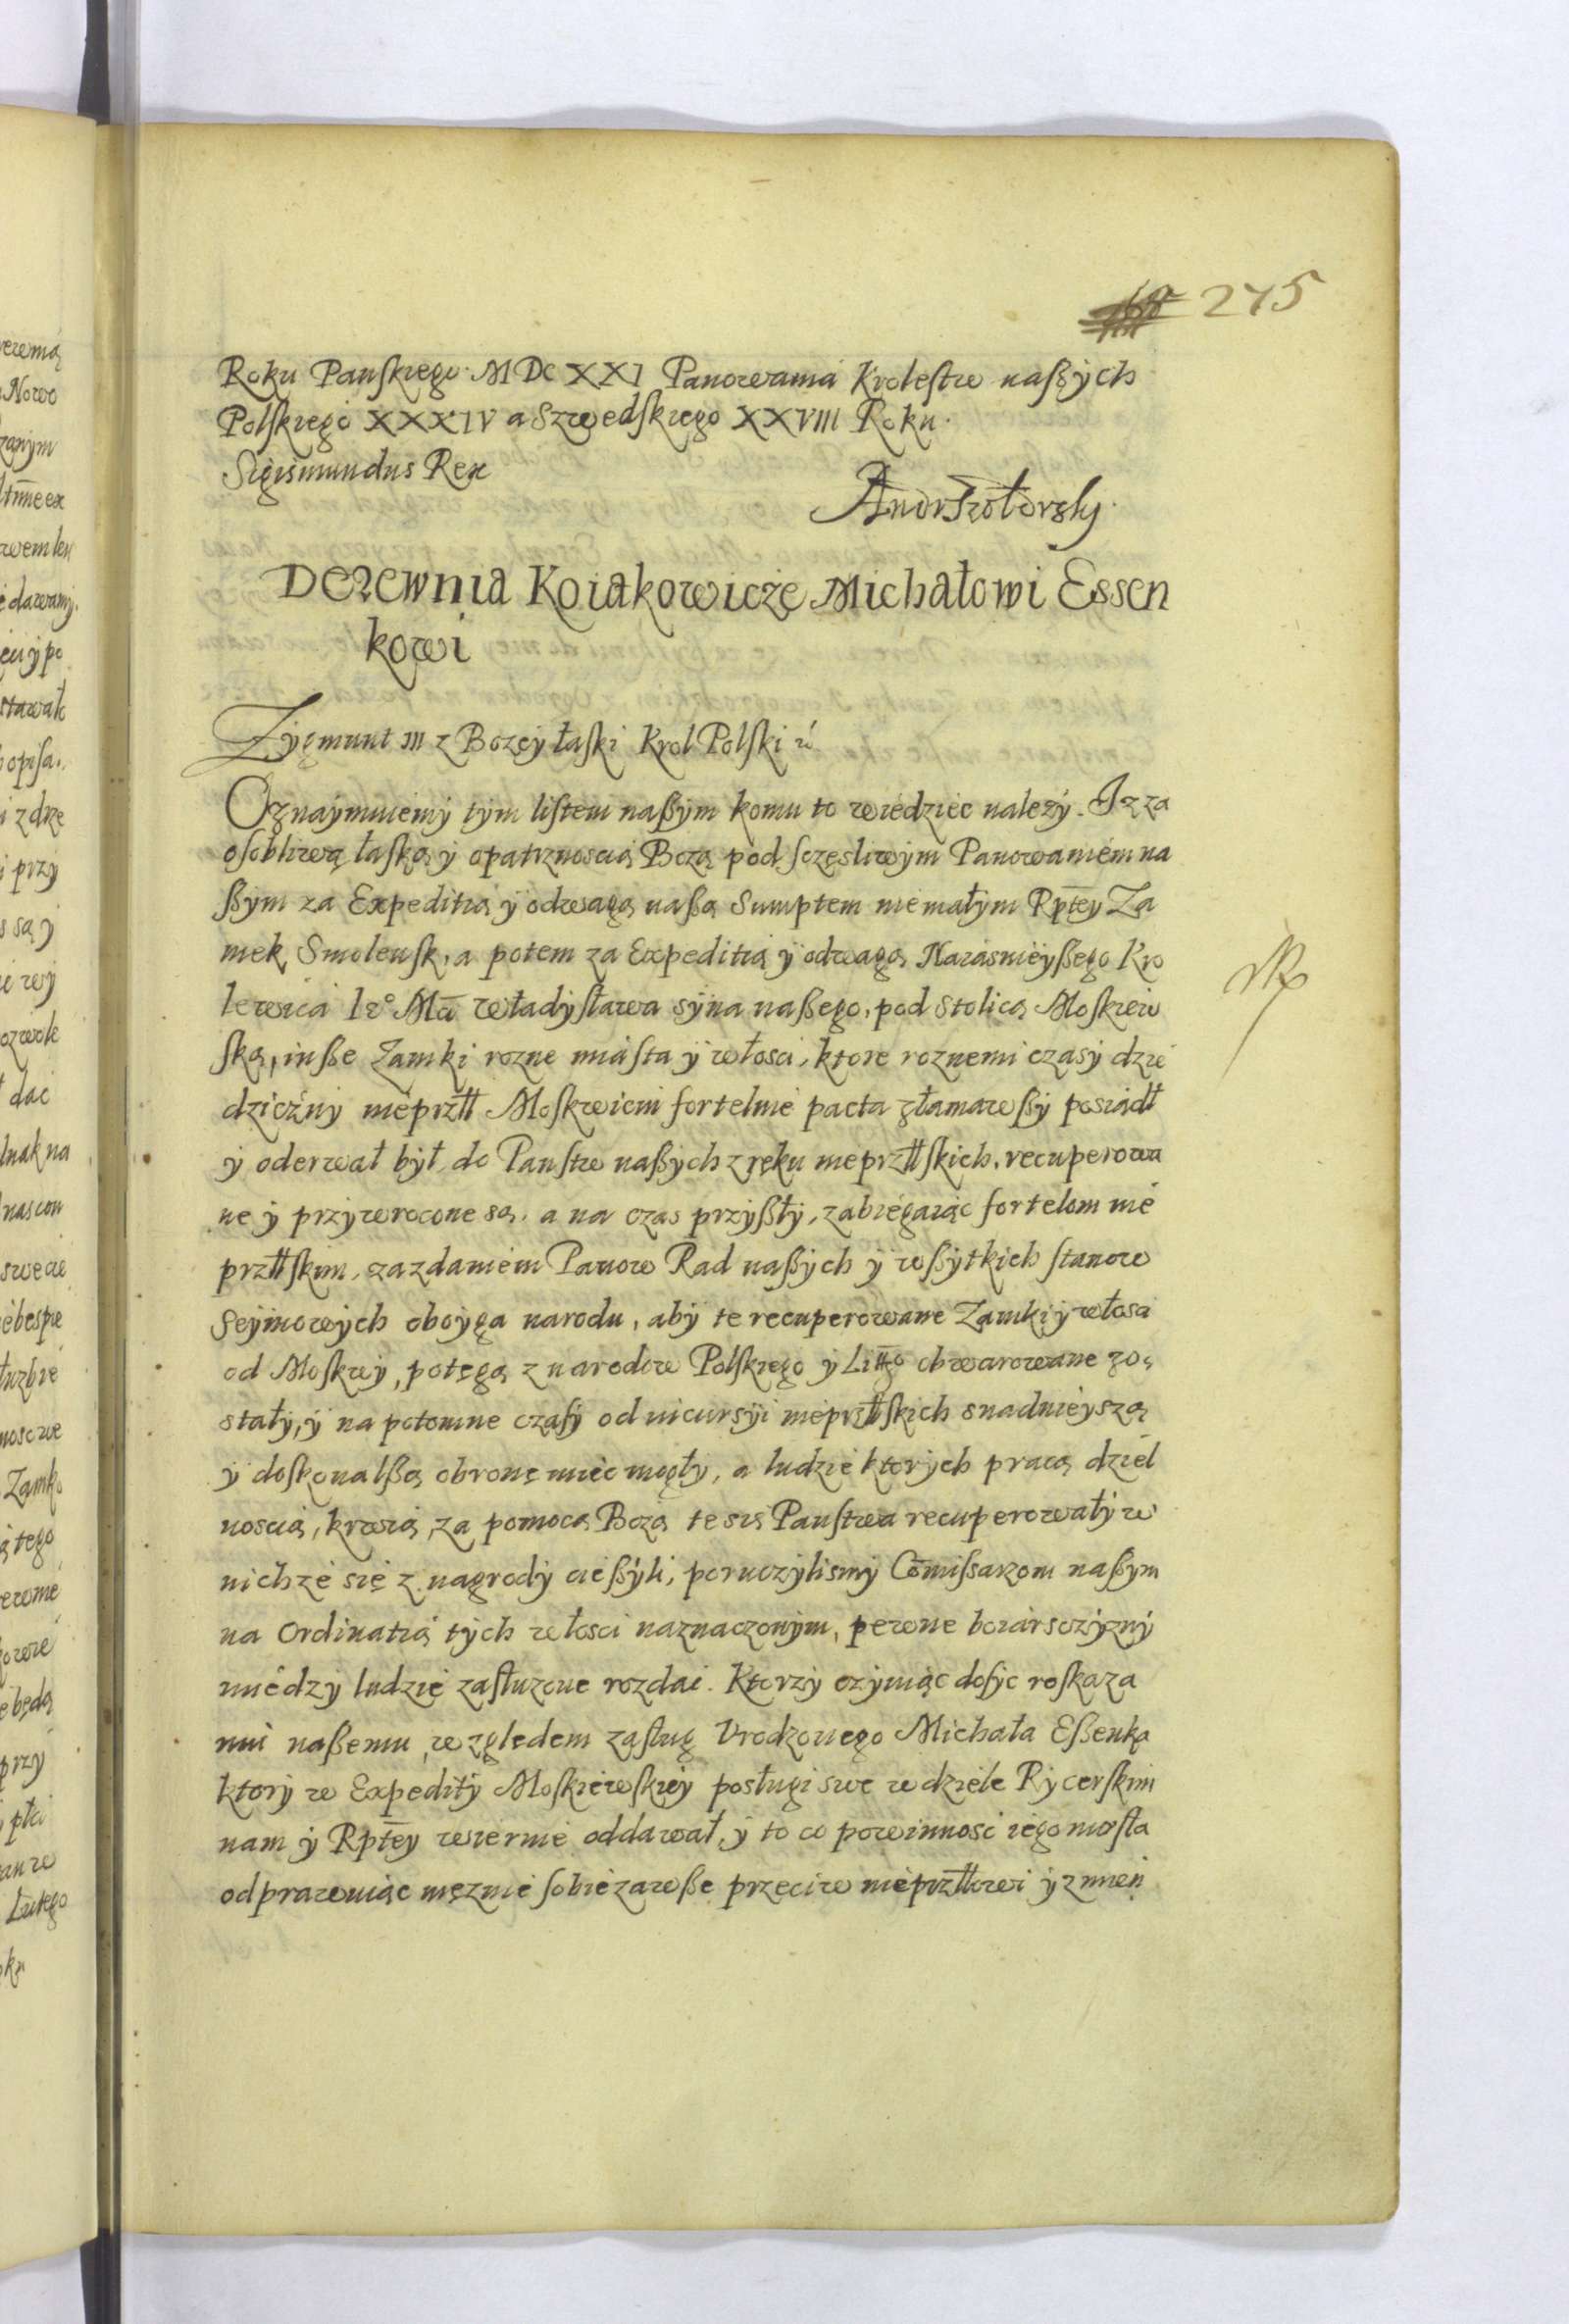 275
Roku Panſkiego MDCXXI Panowania Kroleſtw naßych
Polſkiego XXXIV a Szwedſkiego XXVIII Roku.
Sigismundus Rex
Derewnia Koiakowicze Michałowi Essen
kowi
Zygmunt III z Bozey łaſki Krol Polſki
Oznaymuiemy tym liſtem naßym komu to wiedziec nalezy. Iz za
oſobliwą łaſką y opatrznoscią Bozą pod ſczęsliwym Panowaniem na
ßym za Expeditią y odwagą naßą Sumptem niemałym Rptey Za
mek Smolensk, a potem za Expeditią y odwagą Naiasnieyßego Kro
lewica Ie° Mci Władyſława syna naßego, pod Stolicą Moſkiew
ſką, inße Zamki rozne miaſta y włosci, ktore roznemi czasy dzie
dziczny nieprztl Moſkwicin fortelnie pacta złamawßy posiadł
y oderwał był, do Panſtw naßych z ręku nieprztlſkich, recuperowa
ne y przywrocone są. a na czas przyßły, zabiegaiąc fortelom nie
prztlſkim, za zdaniem Panow Rad naßych y wßytkich ſtanow
Seymowych oboyga narodu, aby te recuperowane Zamki y włosci
od Moſkwy, potęgą z narodow Polſkiego y Littgo obwarowane zo
ſtały, y na potomne czaſy od incursyi nieprztlſkich snadnieyszą
y doſkonalßą obronę miec mogły, a ludzie ktorych pracą dziel
noscią, krwią, za pomocą Bozą te się Panſtwa recuperowały w
nichze się z nagrody cießyli, poruczylismy Comiſsarzom naßym
na Ordinatią tych włosci naznaczonym, pewne boiarsczyzny
miedzy ludzie zaſłuzone rozdai. Ktorzy czyniąc doſyc roſkaza
niu naßemu, względem zaſług Vrodzonego Michała Eßenka
ktory w Expedity Moſkiewſkiey posługi swe w dziele Rycerſkim
nam y Rptey wiernie oddawał, y to co powinnosc iego niosła
odprawuiąc męznie ſobie zawße przeciw nieprztlowi y z nien